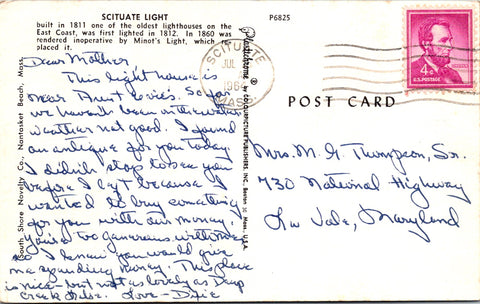 SCITUATE LIGHT
P6825
built in 1811 one of the oldest lighthouses on the
East Coast, was first lighted in 1812. In 1860 was
rendered inoperative by Minot's Light, which
placed it.
SCITUATE
JUL
MASS.
4¢
U.S. POSTAGE
POST CARD
Plastichrome ® by COLOURPICTURE PUBLISHERS, INC. Boston 30, Mass., U.S.A.
South Shore Novelty Co., Nantasket Beach, Mass.
Dear Mother,
This light house is
near Aunt Lovie's. So far
we haven't been in the water
weather not good. I found
an antique for you today.
I didn't stop to see you
before I left because I
wanted to buy something
for you with our money.
You're too generous with me
I knew you would give
me spending money. This place
is nice - but not as lovely as Deep
Creek Lake. Love - Dixie
Mrs. M. G. Thompson, Sr.
730 National Highway
La Vale, Maryland